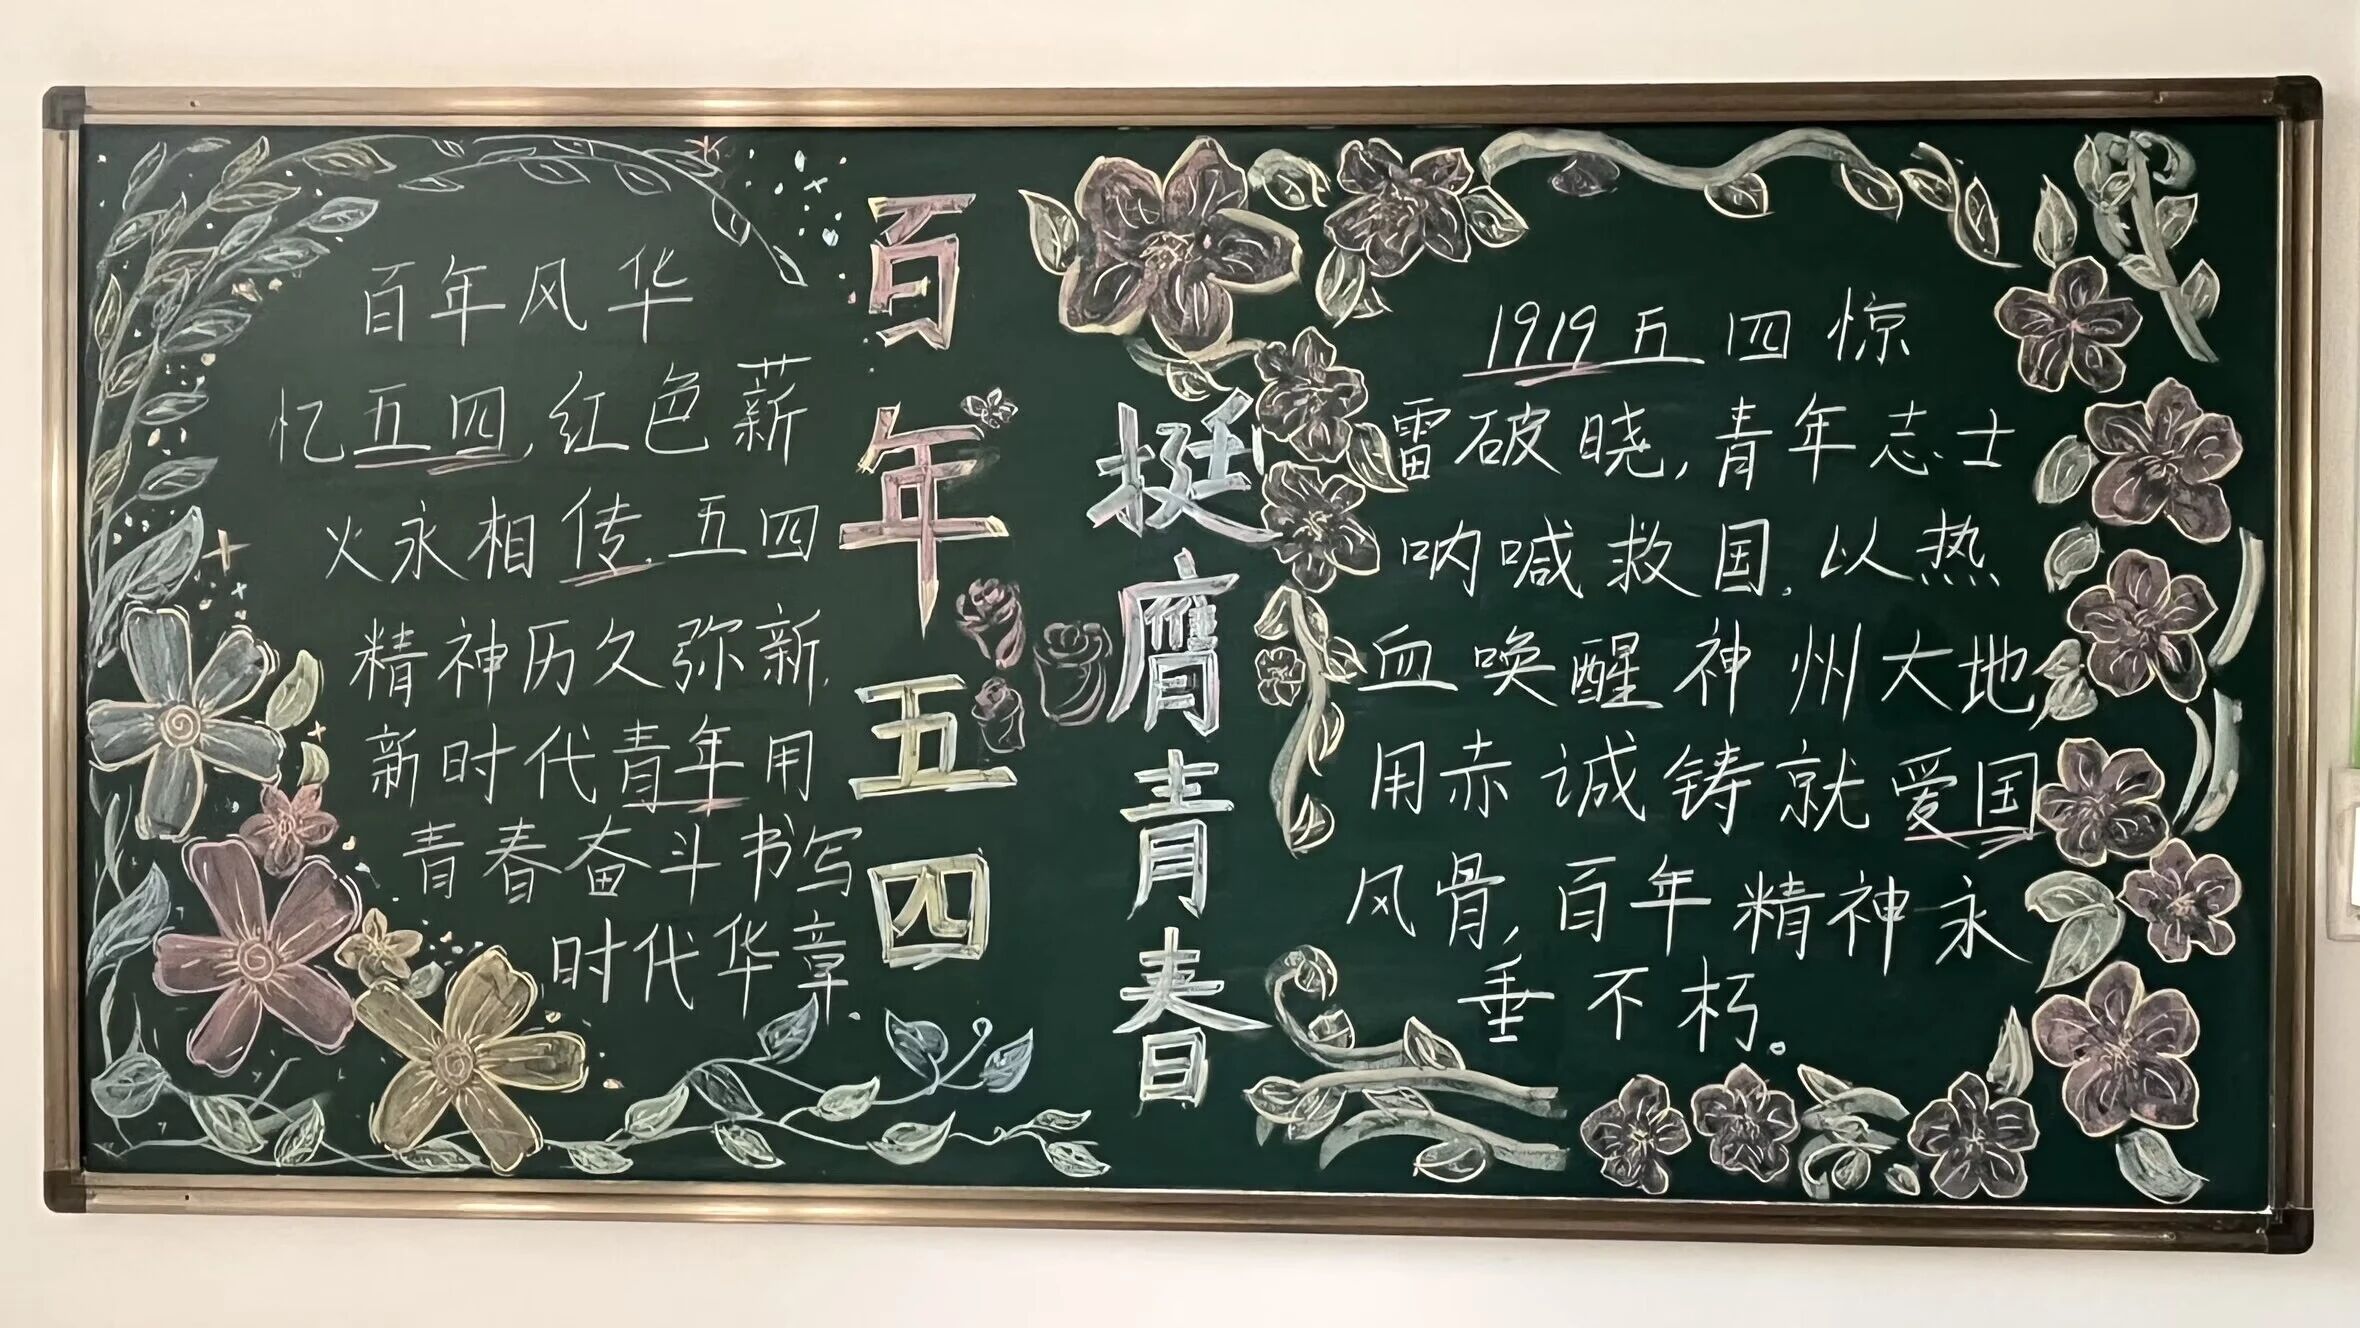 百年风华
忆五四,红色薪
火永相传,五四
精神历久弥新,
新时代青年用
青春奋斗书写
时代华章.
百年五四
挺膺青春
1919五四惊
雷破晓,青年志士
呐喊救国,以热
血唤醒神州大地,
用赤诚铸就爱国
风骨,百年精神永
垂不朽。